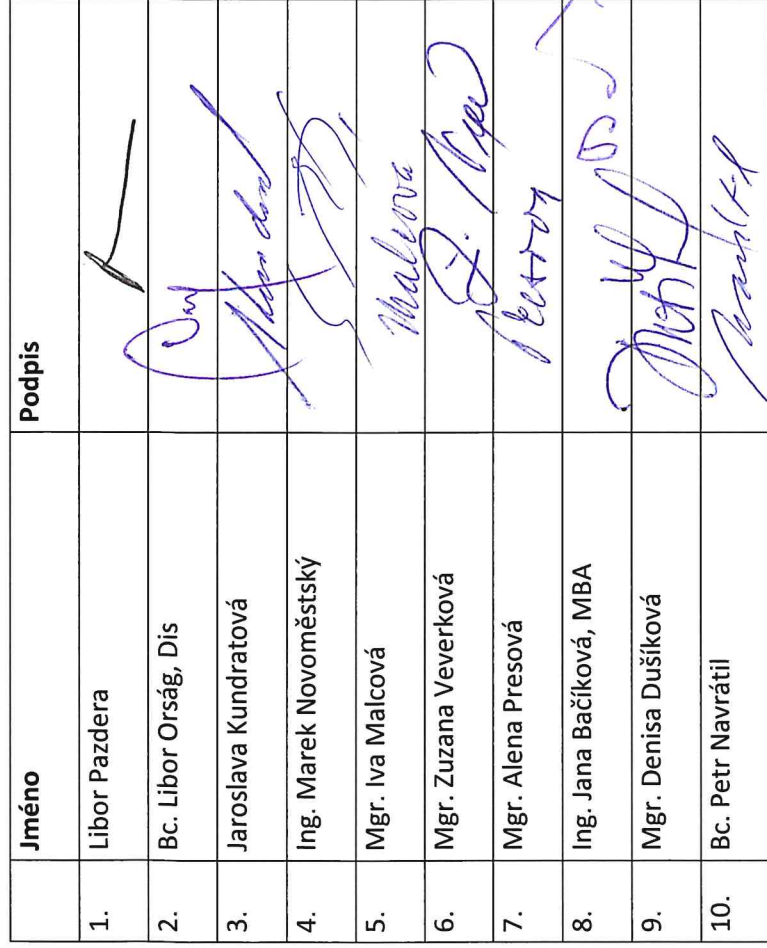 Jméno Podpis
1. Libor Pazdera
2. Bc. Libor Orság, Dis
3. Jaroslava Kundratová
4. Ing. Marek Novoměstský
5. Mgr. Iva Malcová Malcova
6. Mgr. Zuzana Veverková
7. Mgr. Alena Presová
8. Ing. Jana Bačíková, MBA
9. Mgr. Denisa Dušíková
10. Bc. Petr Navrátil